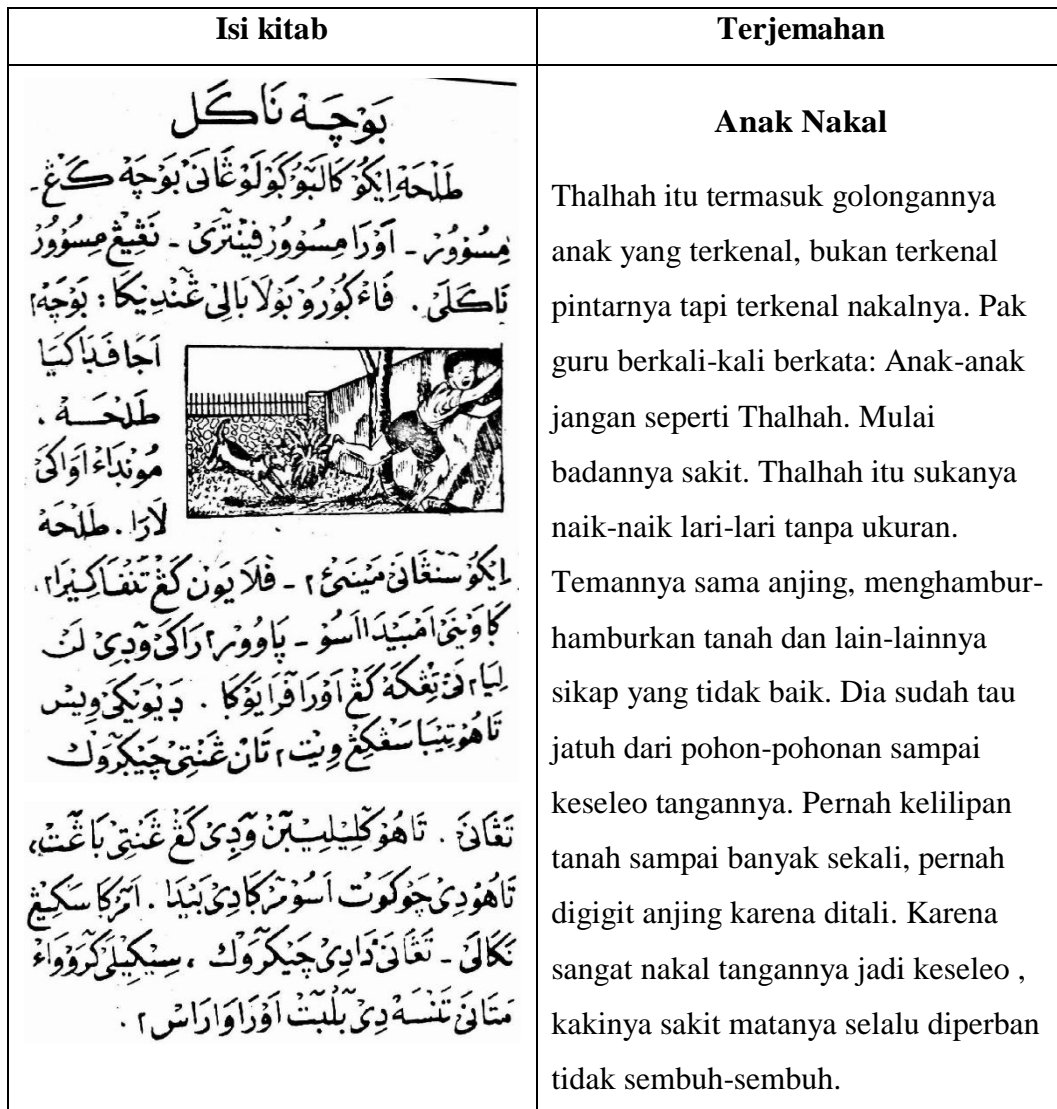 Isi kitab
بَوْچَـهْ نَاكَل
طَلْحَهْ اِيْكُوْ كَالَبَوْ كَوْلَوْڠَانَيْ بَوْچَهْ كَڠْ
مِسُوْوُرْ - اَوْرَا مِسُوْوُرْ فِيْنْتَرَيْ - نَڠِيْڠْ مِسُوْوُرْ
نَاكَلَيْ . فَاءْ كُوْرُوْ بَوْلَا بَالِيْ ڠَنْدِيْكَا : بَوْچَهْ٢
اَجَا فَدَا كَيَا
طَلْحَـهْ .
مُوْنْدَاءْ اَوَاكَيْ
لَارَا . طَلْحَهْ
اِيْكُوْ سَنْڠَانَيْ مَيْنَيْءْ٢ - فْلَا يَوْنْ كَڠْ تَنْفَا كِيْرَا٢،
كَاوَيْنَيْ اَمْبَيْدَا اَسُوْ - ٢ رَاكَيْ وَدِيْ لَنْ
لِيَا٢ نَيْ تِڠْكَهْ كَڠْ اَوْرَا فْرَا يَوْكَا . دَيْوَيْكَيْ وِيْسْ
تَاهُوْ تِيْبَا سَڠْكِڠْ وِيْتْ٢ تَانْ ڠَنْتِيْ چَيْكْرَوْكْ
تَڠَانَيْ . تَاهُوْ كْلِيْلِيْبَنْ وَدِيْ كَڠْ ڠَنْتِيْ بَاڠَتْ،
تَاهُوْ دِيْ چَوْكَوْتْ اَسُوْ مَرْكَا دِيْ بَيْدَا . اَمَرْكَا سَكِيْڠْ
نَكَالَيْ - تَڠَانَيْ دَادِيْ چَيْكْرَوْكْ ، سِيْكِيْلَيْ كْرَوْوَاءْ
مَتَانَيْ تَنْسَـهْ دِيْ بْلَبَتْ اَوْرَا وَارَاسْ٢ .
Terjemahan
Anak Nakal
Thalhah itu termasuk golongannya
anak yang terkenal, bukan terkenal
pintarnya tapi terkenal nakalnya. Pak
guru berkali-kali berkata: Anak-anak
jangan seperti Thalhah. Mulai
badannya sakit. Thalhah itu sukanya
naik-naik lari-lari tanpa ukuran.
Temannya sama anjing, menghambur-
hamburkan tanah dan lain-lainnya
sikap yang tidak baik. Dia sudah tau
jatuh dari pohon-pohonan sampai
keseleo tangannya. Pernah kelilipan
tanah sampai banyak sekali, pernah
digigit anjing karena ditali. Karena
sangat nakal tangannya jadi keseleo ,
kakinya sakit matanya selalu diperban
tidak sembuh-sembuh.